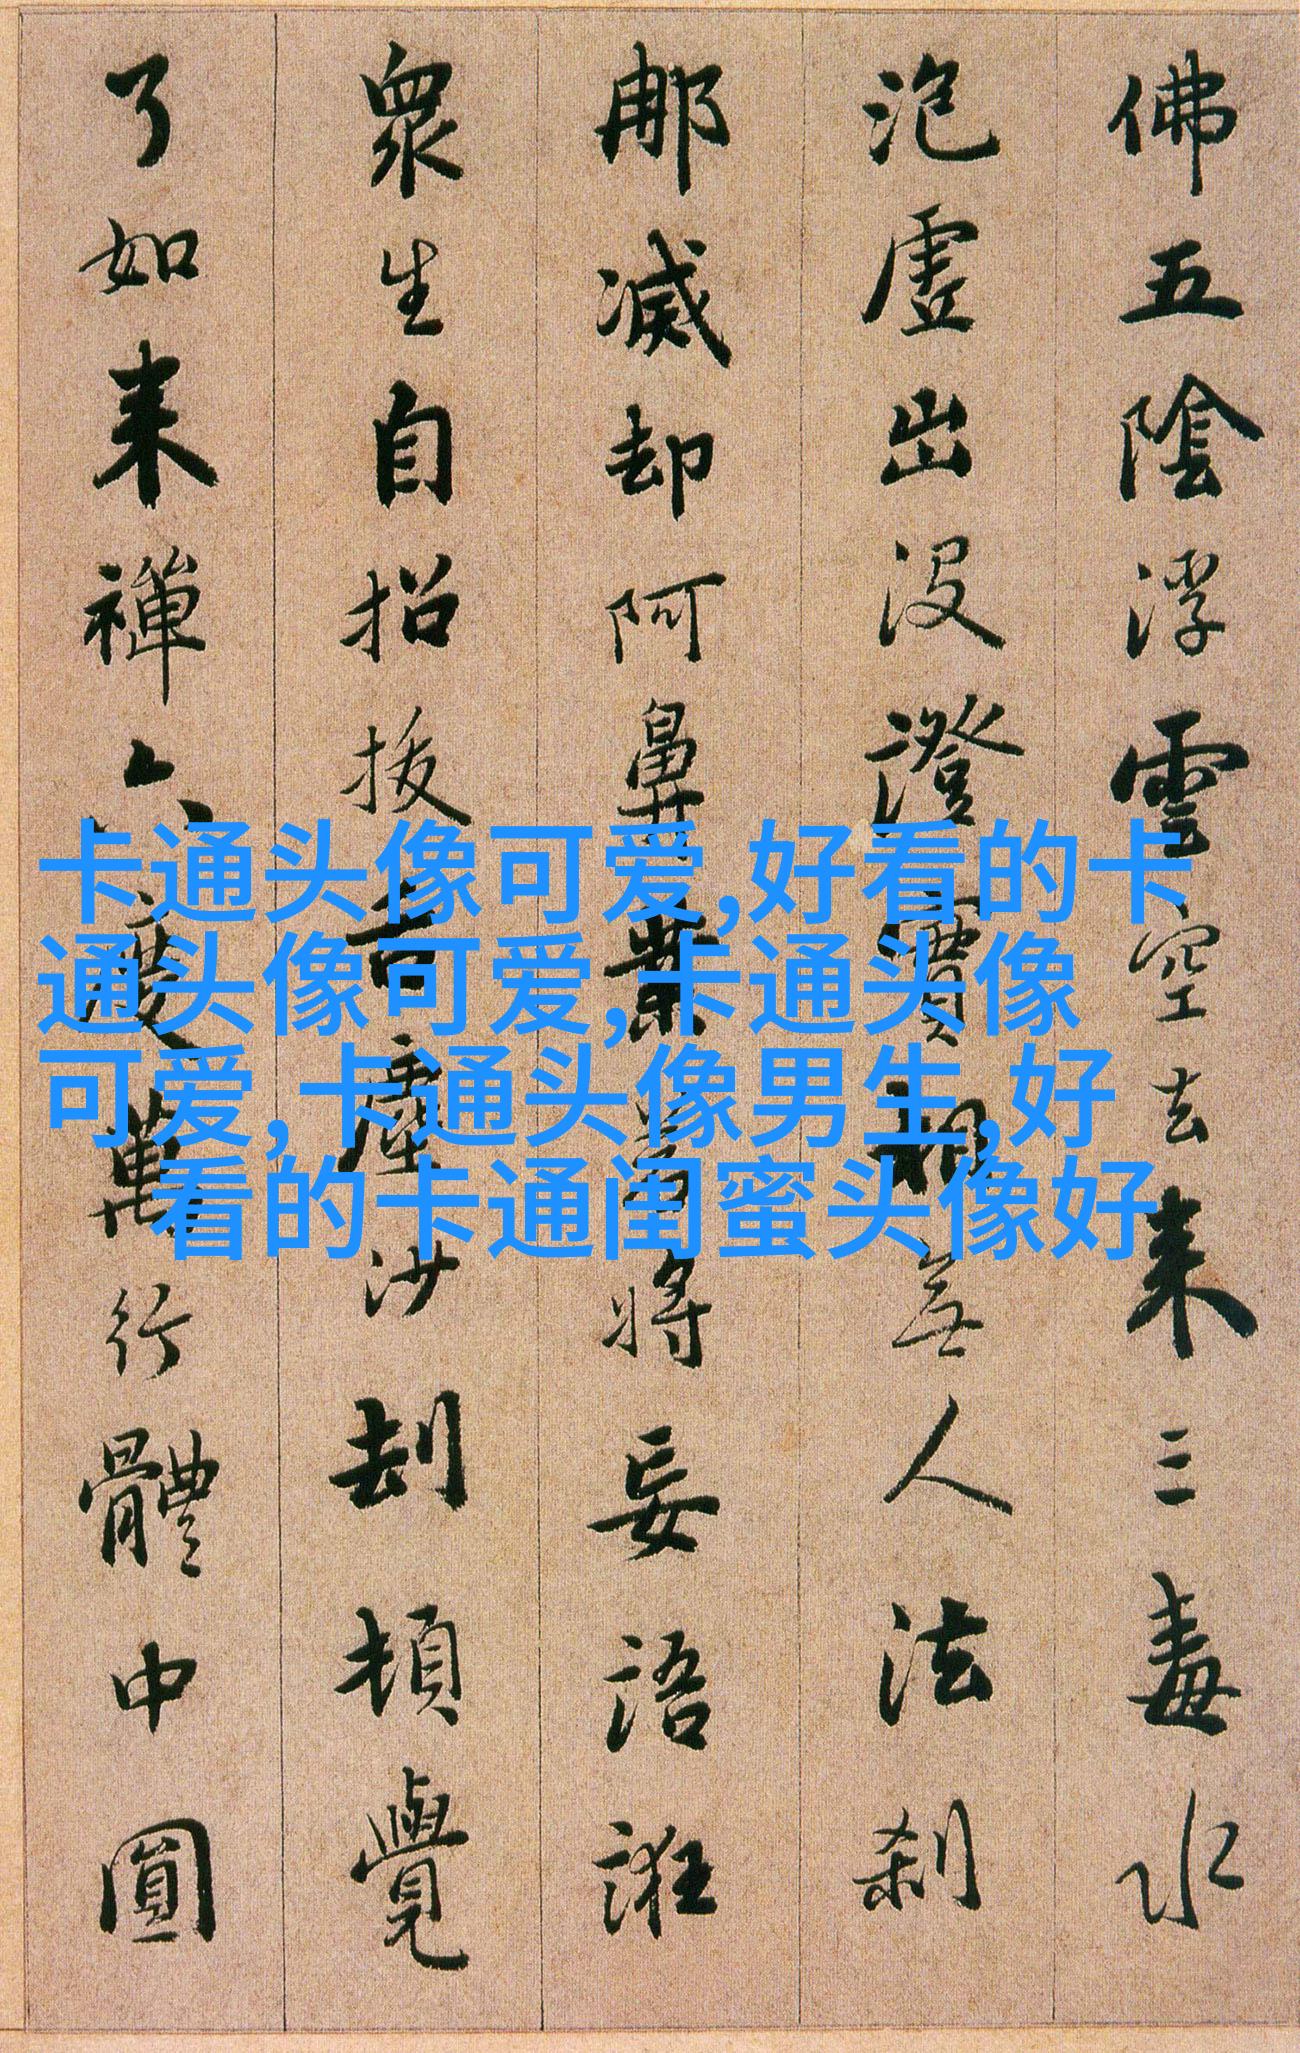 佛五陰浮雲空去来三毒水
泡虛出没證實相無人法刹
那滅却阿鼻業若將妄語誑
衆生自招拔舌塵沙劫頓覺
了如来禪六度萬行體中圓
卡通头像可爱,好看的卡
通头像可爱,卡通头像
可爱,卡通头像男生,好
看的卡通闺蜜头像好